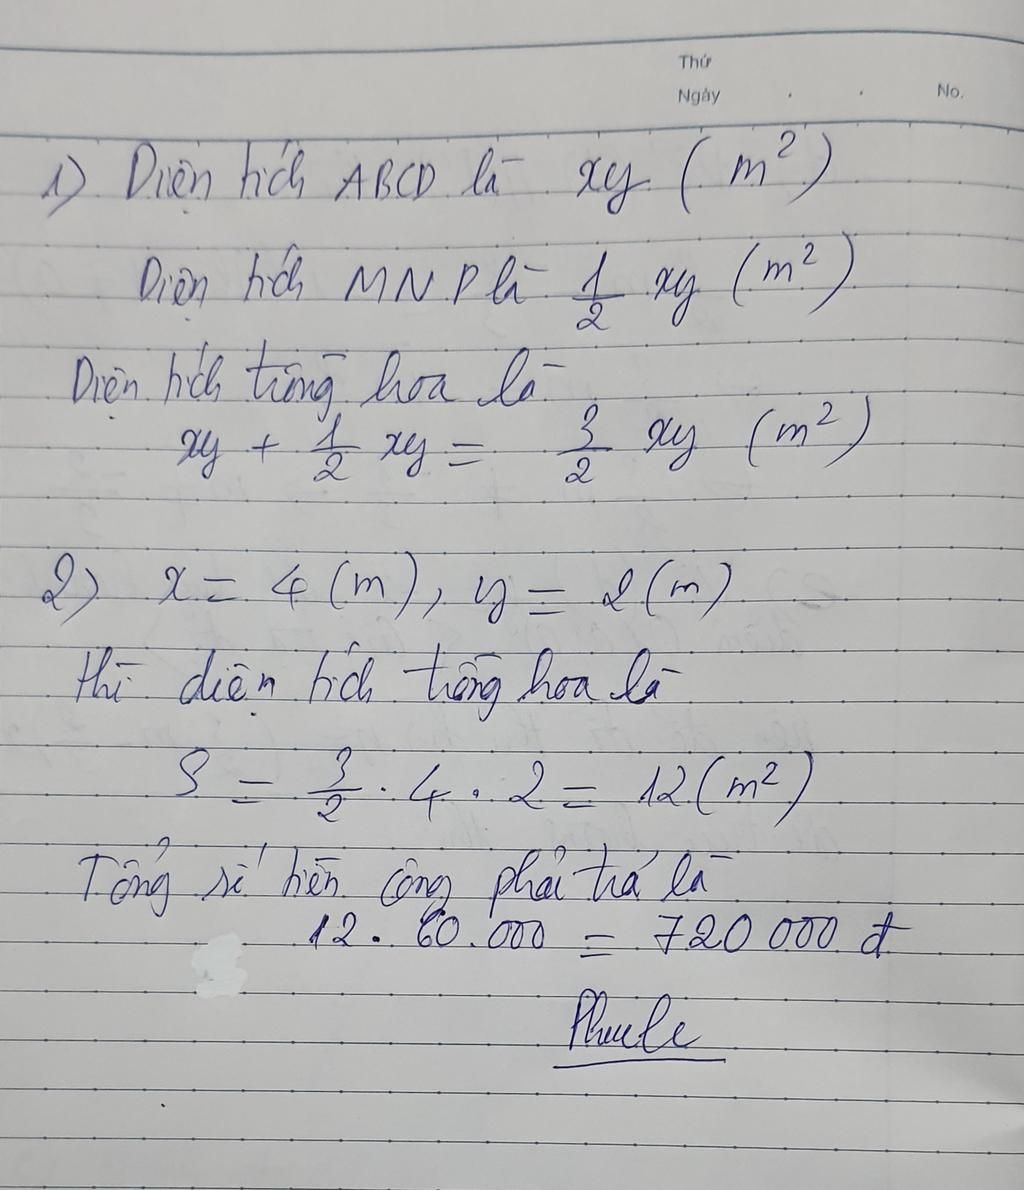 Thứ
Ngày . . No.
1) Diện tích ABCD là xy (m²)
Diện tích MNP là 1/2 xy (m²)
Diện tích trồng hoa là
xy + 1/2 xy = 3/2 xy (m²)
2) x = 4 (m), y = 2 (m)
thì diện tích trồng hoa là
S = 3/2 . 4 . 2 = 12 (m²)
Tổng số tiền công phải trả là
12 . 60.000 = 720 000 đ